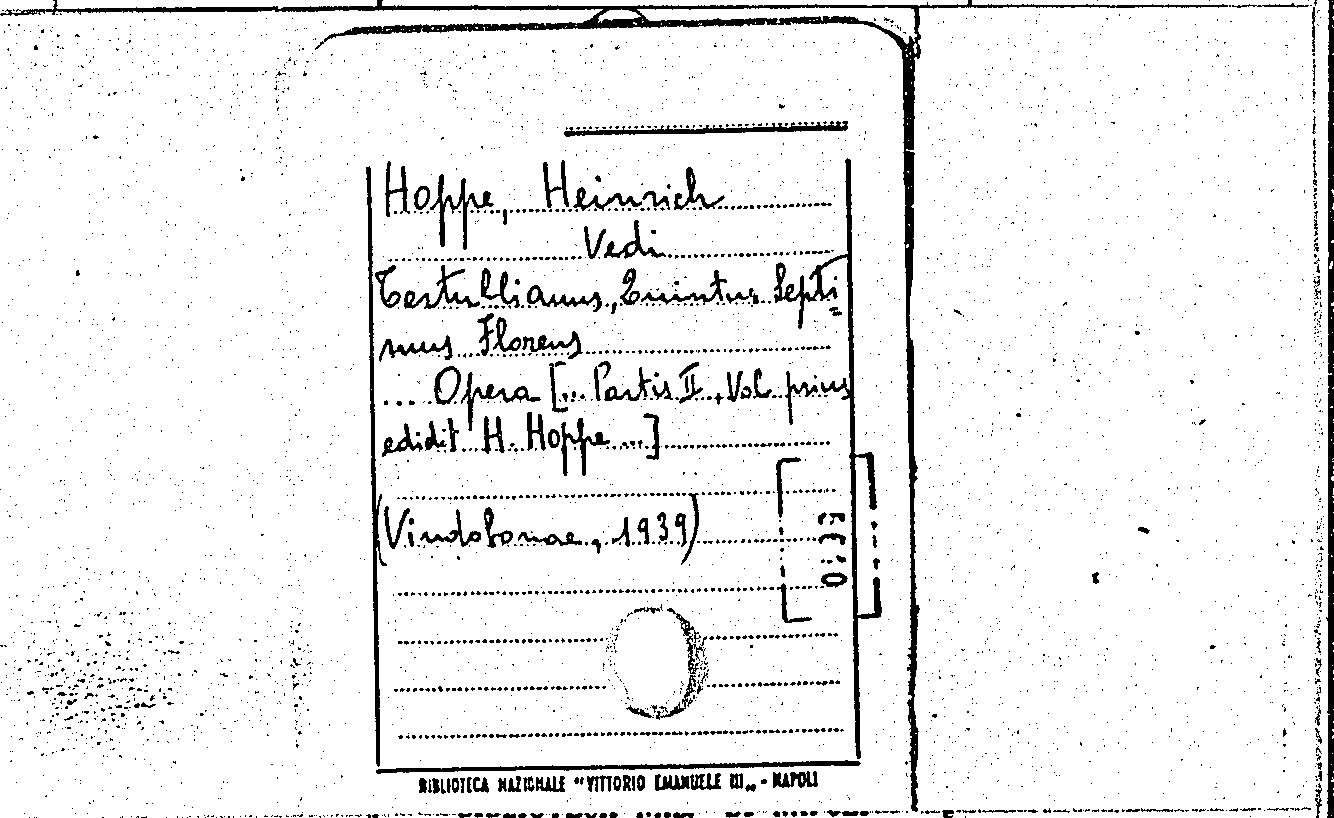 Hoppe, Heinrich
Vedi
Tertullianus, Quintus Septi=
mus Florens
... Opera [... Partis II, Vol. prius
edidit H. Hoppe ...]
(Vindobonae, 1939)
BIBLIOTECA NAZIONALE "VITTORIO EMANUELE III„ - NAPOLI